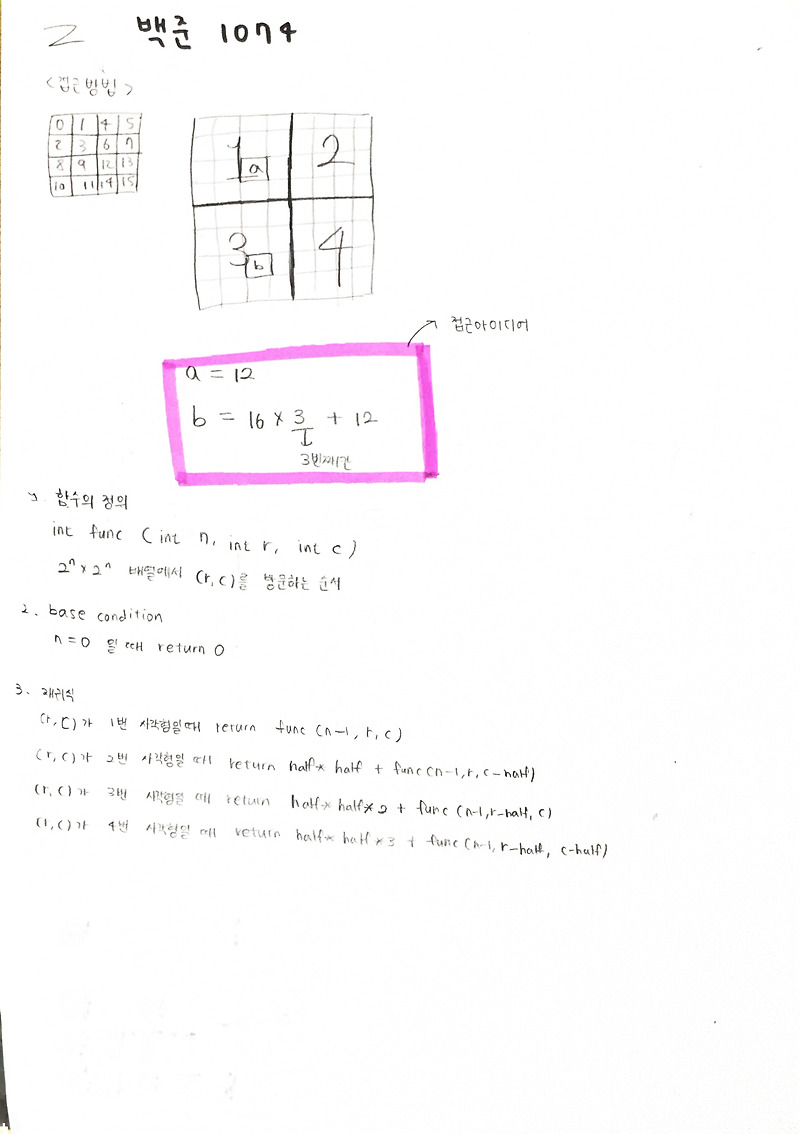 Z 백준 1074
<접근방법>
0 1 4 5
2 3 6 7
8 9 12 13
10 11 14 15
1 a 2
3 b 4
접근아이디어
a = 12
b = 16 × 3 + 12
3번째칸
1. 함수의 정의
int func (int n, int r, int c)
2ⁿ×2ⁿ 배열에서 (r,c)를 방문하는 순서
2. base condition
n=0 일 때 return 0
3. 재귀식
(r,c)가 1번 사각형일때 return func (n-1, r, c)
(r,c)가 2번 사각형일 때 return half* half + func(n-1,r,c-half)
(r,c)가 3번 사각형일 때 return half* half*2 + func (n-1,r-half, c)
(r,c)가 4번 사각형일 때 return half* half *3 + func (n-1, r-half, c-half)